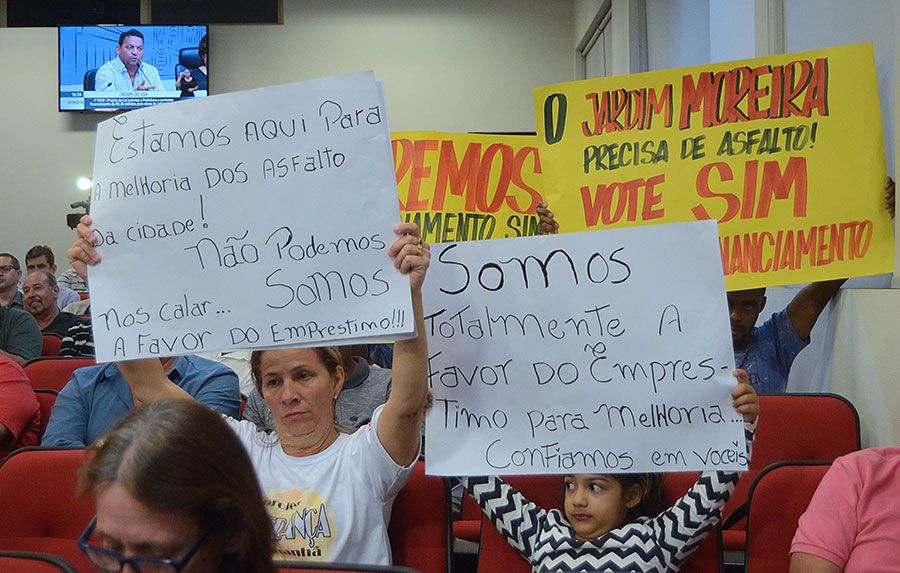 ORDEM DO DIA
Estamos AQUI Para
A Melhoria DOS ASFALTO
Da CIDADE!
NÃO PODEMOS
NOS CALAR... SOMOS
A FAVOR DO EMPRESTIMO!!!
REMOS
CIAMENTO SIM
O JARDIM MOREIRA
PRECISA DE ASFALTO!
VOTE SIM
NANCIAMENTO
SOMOS
TOTALMENTE A
FAVOR DO EMPRES-
TIMO PARA MELHORIA...
CONFIAMOS EM VOCÊIS